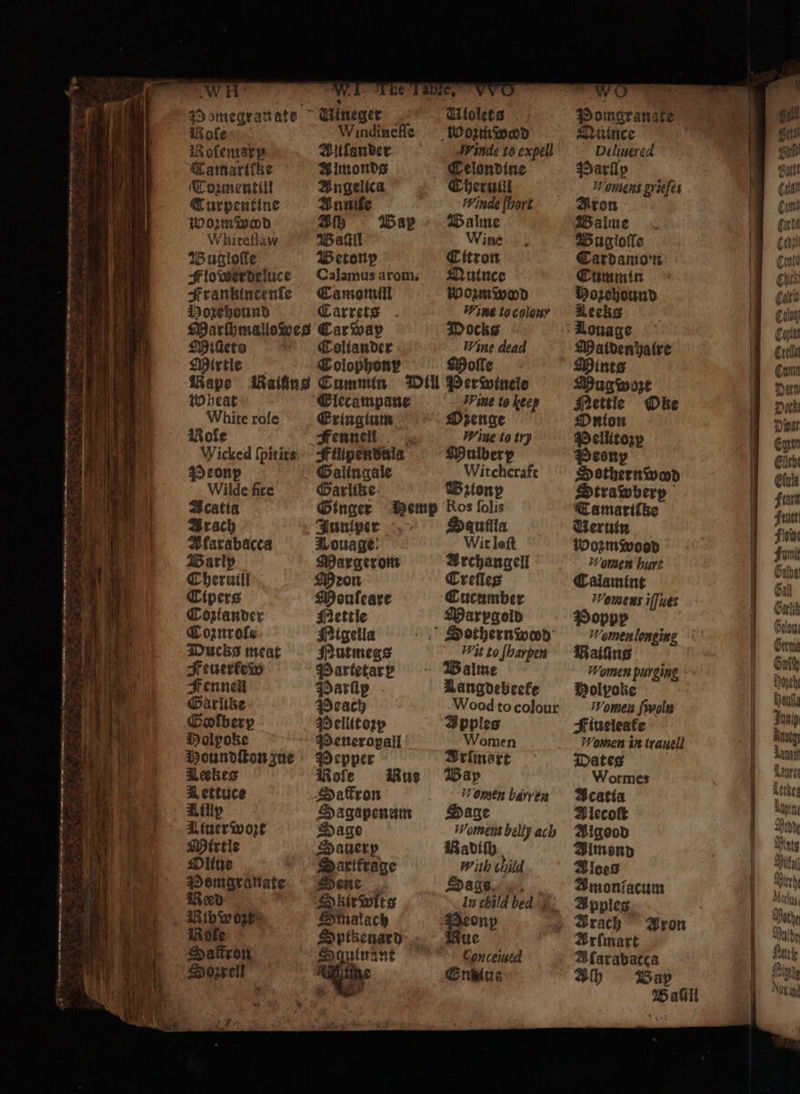 WH
Pomegranate
Rose
Rosemary
Tamariske
Tormentill
Turpentine
Wormwood
Whiteflaw
Buglosse
Flowerdeluce
Frankincense
Horehound
Marshmallowes
Millets
Mirtle
Rape Raisins
Wheat
White rose
Rose
Wicked spirits
Peony
Wilde fire
Acatia
Arach
Asarabacca
Barly
Cheruill
Cipers
Coriander
Cornrose
Ducks meat
Feuerfew
Fennell
Garlike
Golbery
Holyoke
Houndstongue
Leekes
Lettuce
Lilly
Liuerwort
Mirtle
Oliue
Pomgranate
Reed
Ribwort
Rose
Saffron
Sorrell
WI The Table, VVO
Uineger
Windinesse
Alisander
Almonds
Angelica
Annise
Ash Bay
Basil
Betony
Calamus arom.
Camomill
Carrets
Carway
Coliander
Colophony
Cummin Dill
Elecampane
Eringium
Fennell
Filipendula
Galingale
Garlike
Ginger Hemp
Juniper
Louage
Margerom
Myon
Mouseare
Nettle
Nigella
Nutmegs
Parietary
Parsly
Peach
Pellitory
Peneroyall
Pepper
Rose Rue
Saffron
Sagapenum
Sage
Sauery
Saxifrage
Sene
Skirwits
Smalach
Spikenard
Squinant
Uiolets
Wormwood
Winde to expell
Celondine
Cheruill
Winde short
Balme
Wine
Citron
Quince
Wormwood
Wine to colour
Docks
Wine dead
Mosse
Perwincle
Wine to keep
Orenge
Wine to try
Mulbery
Witchcraft
Briony
Ros solis
Squilla
Wit lest
Archangell
Cresses
Cucumber
Marygold
Sothernwood
Wit to sharpen
Balme
Langdebeefe
Wood to colour
Apples
Women
Arsmart
Bay
Women barren
Sage
Womens belly ach
Radish
With child
Sage
In child bed
Peony
Rue
Conceiued
Endiue
WO
Pomgranate
Quince
Deliuered
Parsly
Womens griefes
Aron
Balme
Buglosse
Cardamon
Cummin
Horehound
Leeks
Louage
Maidenhaire
Mints
Mugwort
Nettle Oke
Onion
Pellitory
Peony
Sothernwood
Strawbery
Tamariske
Veruin
Wormwood
Women hurt
Calamint
Womens issues
Poppy
Women longing
Raisins
Women purging
Holyoke
Women swoln
Fiueleafe
Women in trauell
Dates
Wormes
Acatia
Alecost
Algood
Almond
Aloes
Amoniacum
Apples
Arach Aron
Arsmart
Asarabacca
Ash Bay
Basil